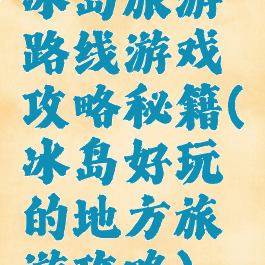 冰岛旅游
路线游戏
攻略秘籍(
冰岛好玩
的地方旅
游攻略)